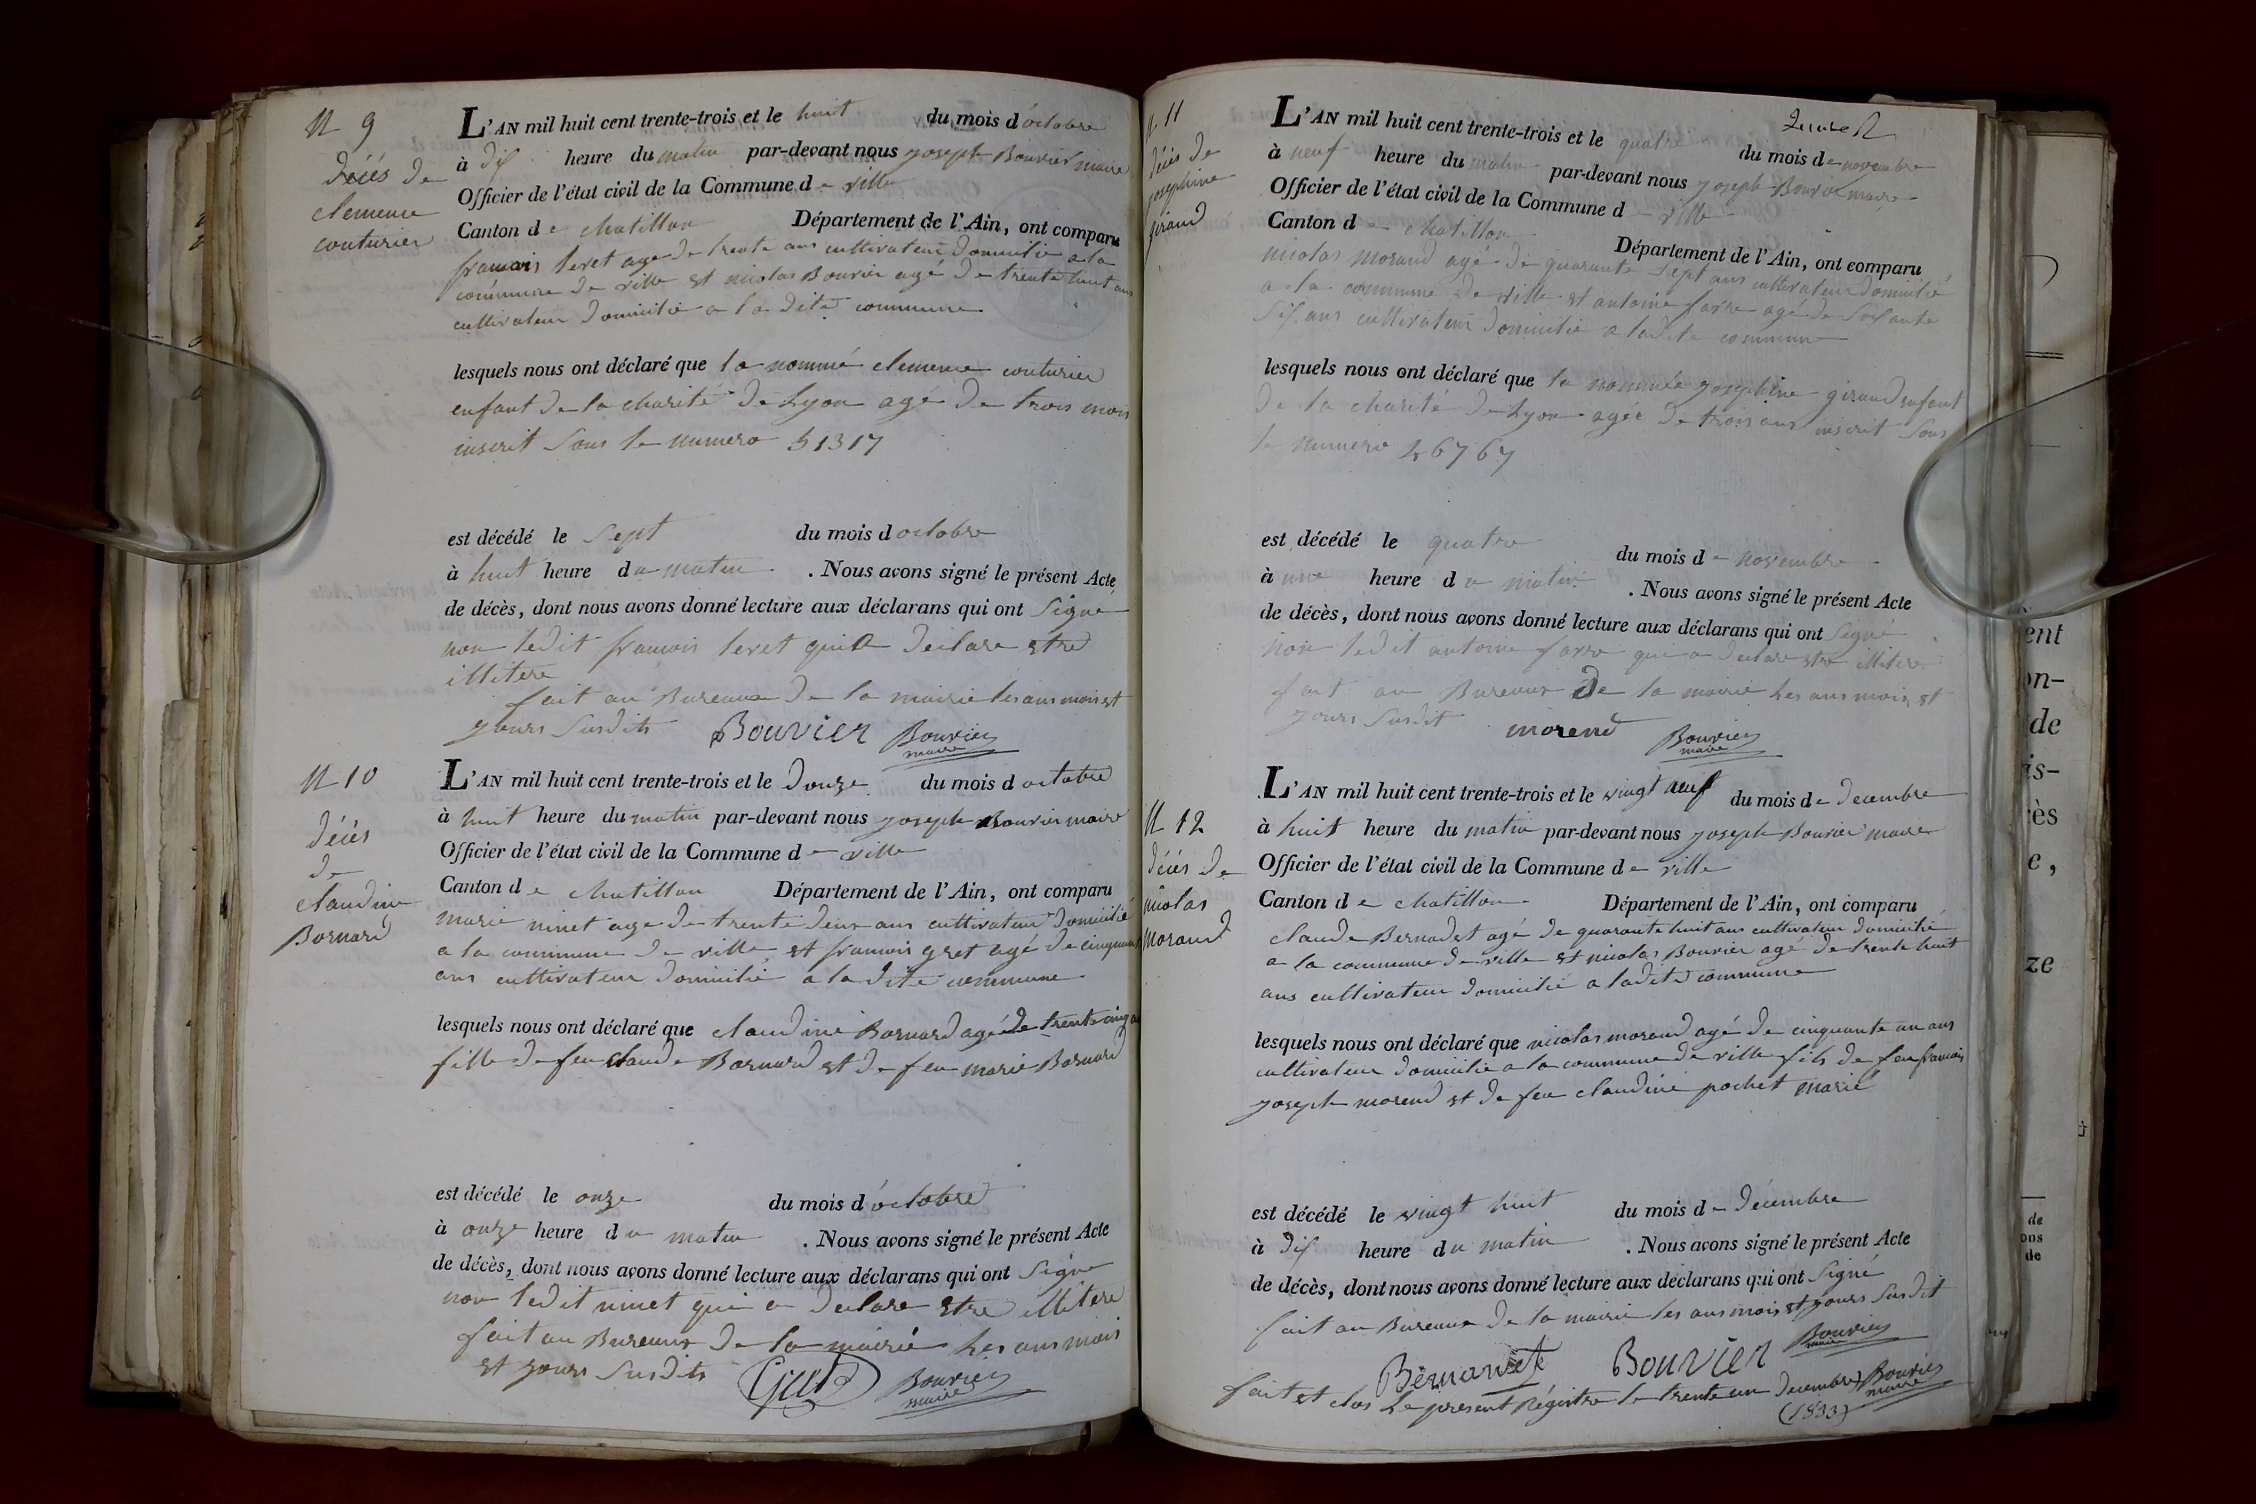 N 9
décés de
clemence
couturier
L'AN mil huit cent trente-trois et le huit du mois d'octobre
à dix heure du matin par-devant nous joseph Bouvier maire
Officier de l'état civil de la Commune de ville
Canton de chatillon Département de l'Ain, ont comparu
francois levet age de trente ans cultivateur domicilie a la
commune de ville et nicolas Bouvier agé de trente huit ans
cultivateur domicilie a la dite commune
lesquels nous ont déclaré que la nommé clemence couturier
enfant de la charité de Lyon agé de trois mois
inscrit sous le numero 51317
est décédé le sept du mois d octobre
à huit heure du matin . Nous avons signé le présent Acte
de décès, dont nous avons donné lecture aux déclarans qui ont signe
non ledit francois levet qui a declare etre
illitere
fait au Bureaux de la mairie les ans mois et
yours susdits Bouvier Bouvier
maire
N 10
décés
de
claudine
Bornard
L'AN mil huit cent trente-trois et le douze du mois d octobre
à huit heure du matin par-devant nous joseph Bouvier maire
Officier de l'état civil de la Commune de ville
Canton de chatillon Département de l'Ain, ont comparu
marie ninet age de trente deux ans cultivateur domicilié
a la commune de ville et francois gret agé de cinquante
ans cultivateur domicilié a la dite commune
lesquels nous ont déclaré que claudine Bornard agé de trente cinq
fille de feu claude Bornard et de feu marie Bornard
est décédé le onze du mois d'octobre
à onze heure du matin . Nous avons signé le présent Acte
de décès, dont nous avons donné lecture aux déclarans qui ont signe
non ledit ninet qui a declare etre illitere
fait au Bureaux de la mairie les ans mois
et yours susdits Bouvier
maire
N 11
décés de
josephine
giraud
L'AN mil huit cent trente-trois et le quatre du mois de novembre
à neuf heure du matin par-devant nous joseph Bouvier maire
Officier de l'état civil de la Commune de ville
Canton de chatillon Département de l'Ain, ont comparu
nicolas morand agé de quarante sept ans cultivateur domicilié
a la commune de ville et antoine farre agé de soixante
six ans cultivateur domicilié a ladite commune
lesquels nous ont déclaré que la nommée josephine giraud enfant
de la charité de Lyon agée de trois ans inscrit sous
le numero 46767
est décédé le quatre du mois de novembre
à une heure du matin . Nous avons signé le présent Acte
de décès, dont nous avons donné lecture aux déclarans qui ont signé
non ledit antoine farre qui a declare etre illitere
fait au Bureaux de la mairie les ans mois et
yours susdit morend Bouvier
maire
N 12
décés de
nicolas
Morand
L'AN mil huit cent trente-trois et le vingt neuf du mois de decembre
à huit heure du matin par-devant nous joseph Bouvier maire
Officier de l'état civil de la Commune de ville
Canton de chatillon Département de l'Ain, ont comparu
claude Bernadet agé de quarante huit ans cultivateur domicilié
a la commune de ville et nicolas Bouvier agé de trente huit
ans cultivateur domicilié a ladite commune
lesquels nous ont déclaré que nicolas morend agé de cinquante un ans
cultivateur domicilie a la commune de ville fils de feu francois
joseph morend et de feu claudine pochet marié
est décédé le vingt huit du mois de décembre
à dix heure du matin . Nous avons signé le présent Acte
de décès, dont nous avons donné lecture aux déclarans qui ont signé
fait au Bureaux de la mairie les ans mois et yours susdit
Bouvier Bouvier
maire
fait et clos le present Régistre le trente un decembre Bouvier
(1833) maire